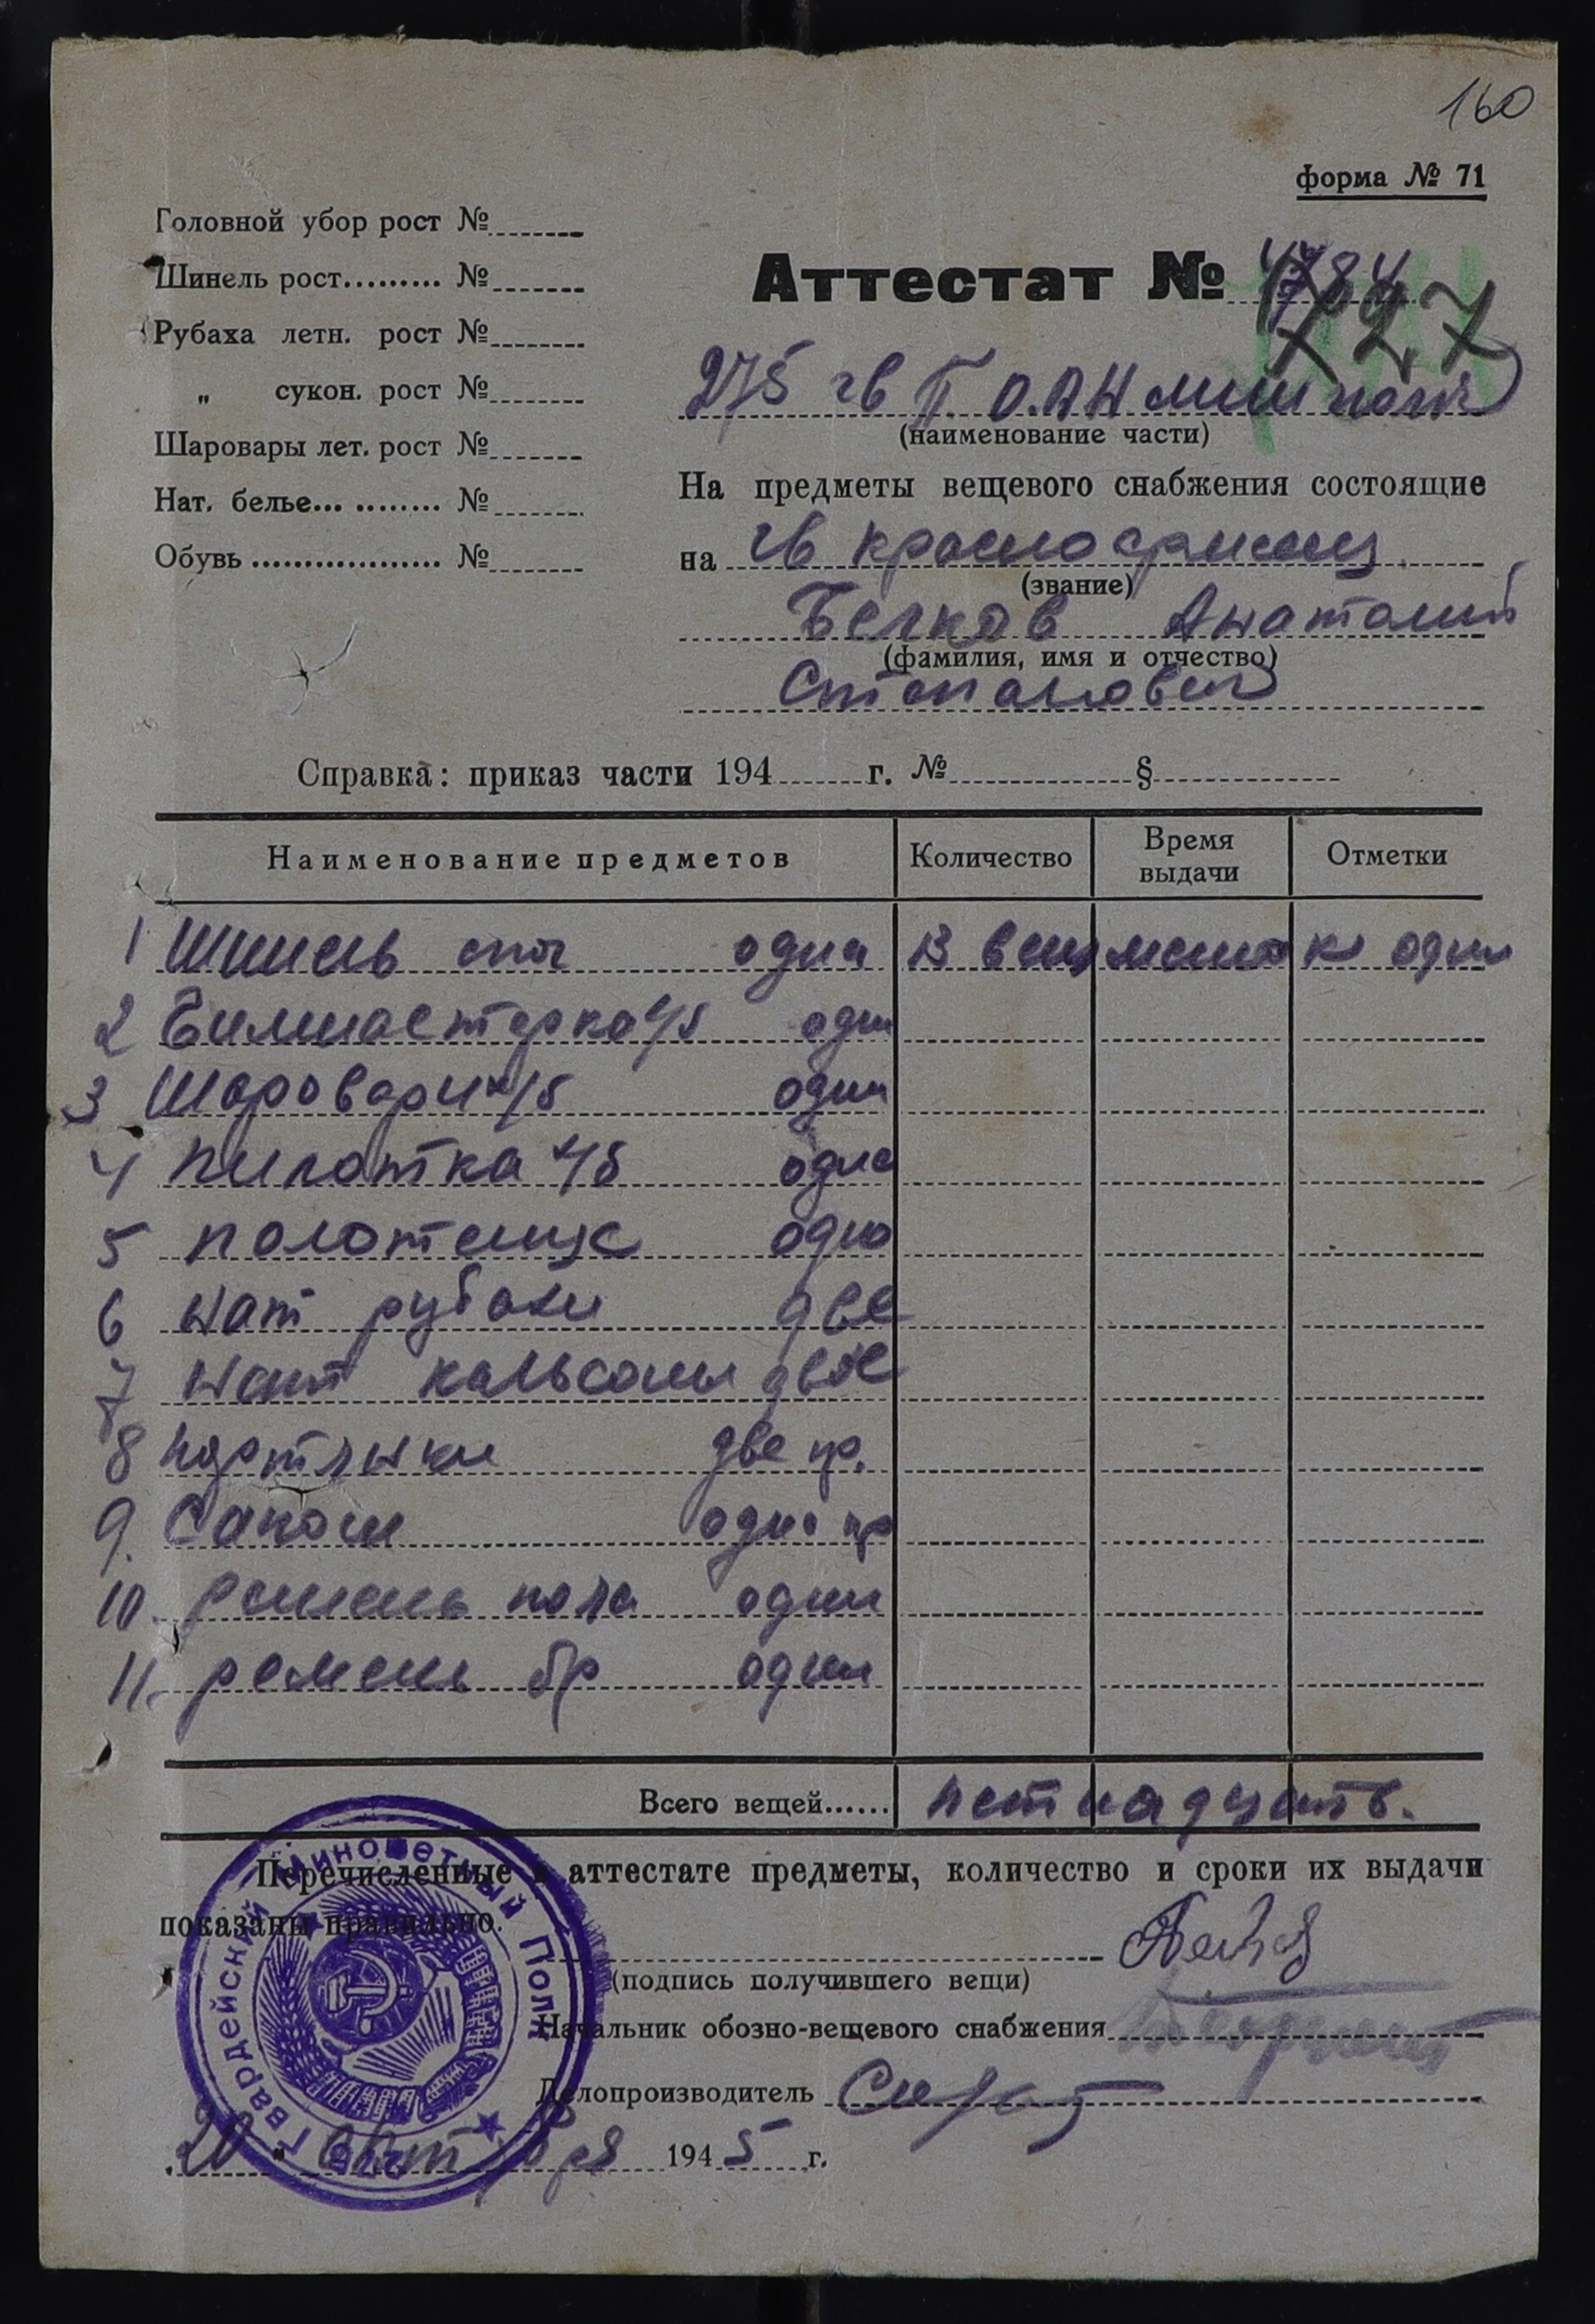 160
форма № 71
Головной убор рост №
Шинель рост......... №
Рубаха летн. рост №
„ сукон. рост №
Шаровары лет. рост №
Нат. белье... ........ №
Обувь .................. №
Аттестат № 4784
727
275 гв П.О.АН мин полк
(наименование части)
На предметы вещевого снабжения состоящие
на гв красноармеец
(звание)
Белков Анатолий
(фамилия, имя и отчество)
Степанович
Справка: приказ части 194 г. № §
Наименование предметов Количество Время выдачи Отметки
1 Шинель одна В вещ мешок один
2 Гимнастерка х/б одна
3 Шаровари х/б одни
4 пилотка х/б одна
5 полотенце одно
6 нат рубахи две
7 нат кальсоны двое
8 портянки две пр.
9. Сапоги одна пр
10. ремень пояс один
11. ремень бр один
Всего вещей...... петнадцать.
Перечисленные в аттестате предметы, количество и сроки их выдачи
показаны правильно.
(подпись получившего вещи)
Начальник обозно-вещевого снабжения
Делопроизводитель
20 " октября 1945 г.
275 Гвардейский Минометный Полк